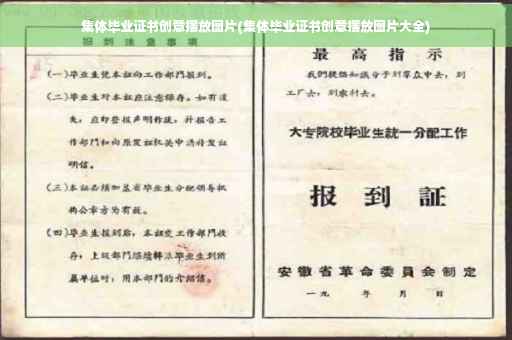 集体毕业证书创意摆放图片(集体毕业证书创意摆放图片大全)
报到注意事项
(一)毕业生凭本证向工作部门报到。
(二)毕业生对本证应注意保存。如有遗
失,应即登报声明作废,并报告工
作部门和向原发证机关申请补发证
明信。
(三)本证必须加盖省毕业生分配领导机
构公章方为有效。
(四)毕业生报到后,本证交工作部门收
存;上级部门继续转派毕业生到所
属单位时,用本部门的介绍信。
最高指示
我们提倡知识分子到群众中去,到
工厂去,到农村去。
大专院校毕业生统一分配工作
报到证
安徽省革命委员会制定
一九 年 月 日